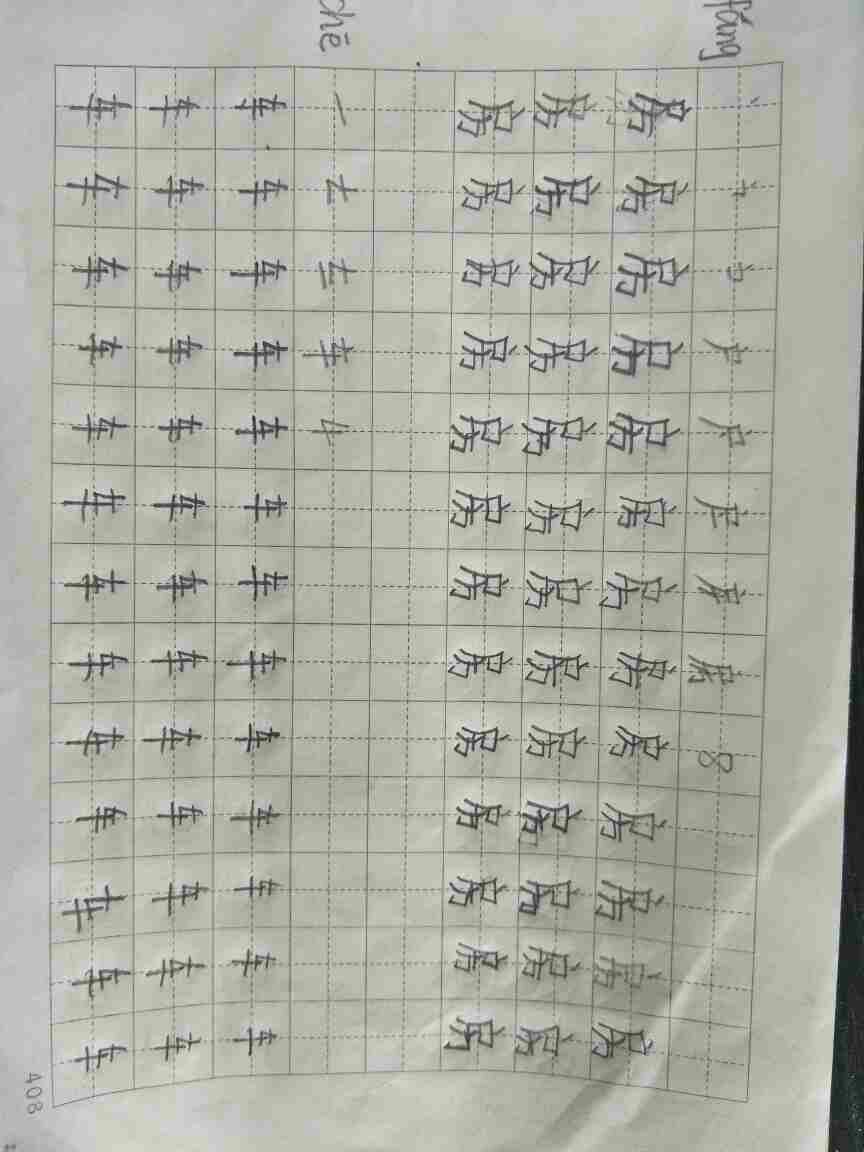 fáng
丶 户 房 8
房 房 房 房 房 房 房 房 房 房 房 房 房
房 房 房 房 房 房 房 房 房 房 房 房 房
房 房 房 房 房 房 房 房 房 房 房 房 房
chē
一 车 4
车 车 车 车 车 车 车 车 车 车 车 车 车
车 车 车 车 车 车 车 车 车 车 车 车 车
车 车 车 车 车 车 车 车 车 车 车 车 车
408